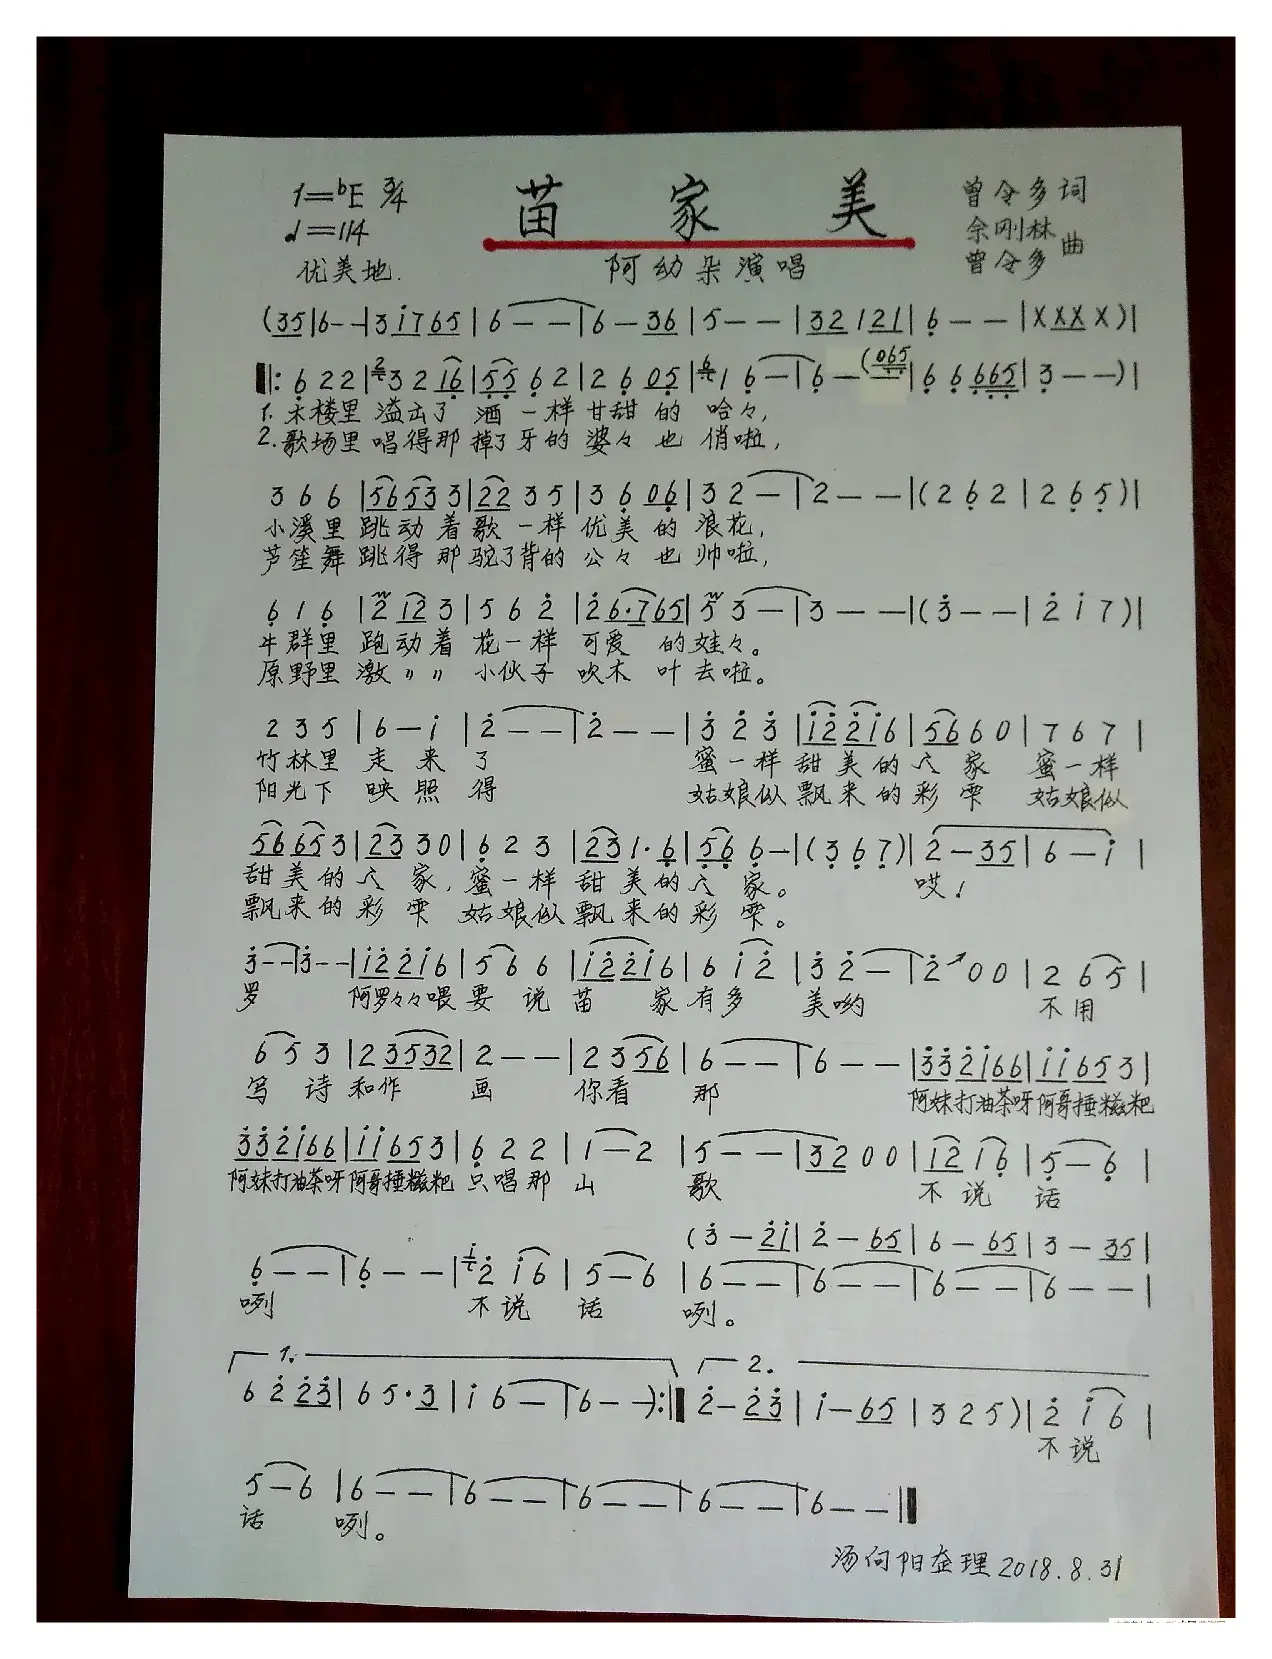 1=♭E 3/4
♩=114
优美地.
苗 家 美
阿幼朵演唱
曾令多词
余刚林
曾令多 曲
(35|6--|3i765|6--|6-36|5--|32121|6--|XXXX)|
‖: 6 2 2|3 2 16|55 6 2|2 6 05|1 6-|6-(065|6 6 665|3--)|
1. 木楼里 溢出了 酒 一样 甘甜 的 哈々,
2. 歌场里 唱得那 掉了牙的 婆々 也 俏啦,
3 6 6|5653 3|22 3 5|3 6 06|3 2-|2--|(2 6 2|2 6 5)|
小溪里 跳动着 歌 一样 优美 的 浪花,
芦笙舞 跳得那 驼了背的 公々 也 帅啦,
6 1 6|2 12 3|5 6 2|26·765|5 3-|3--|(3--|2 i 7)|
牛群里 跑动着 花一样 可爱 的娃々。
原野里 激〃〃 小伙子 吹木叶去啦。
2 3 5|6-i|2--|2--|3 2 3|i22i6|56 6 0|7 6 7|
竹林里 走来了 蜜一样 甜美的 家 蜜一样
阳光下 映照得 姑娘似 飘来的彩 姑娘似
56 65 3|23 3 0|6 2 3|231·6|56 6-|(3 6 7)|2-35|6-i|
甜美的 家, 蜜一样 甜美的 家。 哎!
飘来的彩 姑娘似 飘来的彩 。
3--|3--|i22i6|5 6 6|i22i6|6 i 2|3 2-|2 0 0|2 6 5|
罗 阿罗々々喂 要 说 苗 家 有多 美哟 不用
6 5 3|2 3532|2--|2 3 56|6--|6--|332i66|ii653|
写诗和作 画 你看 那 阿妹打油茶呀 阿哥捶糍粑
332i66|ii653|6 2 2|1-2|5--|32 0 0|12 1 6|5-6|
阿妹打油茶呀 阿哥捶糍粑 只唱那 山 歌 不说 话
(3-2i|2-65|6-65|3-35|
6--|6--|2 i6|5-6|6--|6--|6--|6--|
咧 不说 话 咧。
1. 2.
6 2 23|6 5·3|i 6-|6--):‖2-23|i-65|3 2 5)|2 i 6|
不说
5-6|6--|6--|6--|6--|6--‖
话 咧。
汤向阳整理2018.8.31